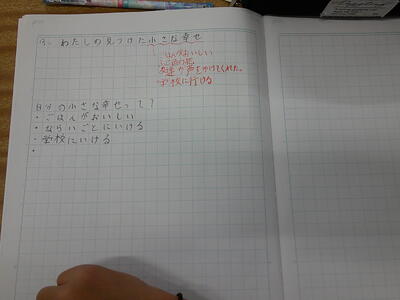 わたしの見つけた小さな幸せ
おいしい
友達が声をかけてくれた。
学校に行ける
自分の小さな幸せって?
・ごはんがおいしい
・ならいごとにいける
・学校にいける
・